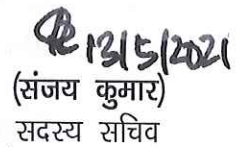 13/5/2021
(संजय कुमार)
सदस्य सचिव